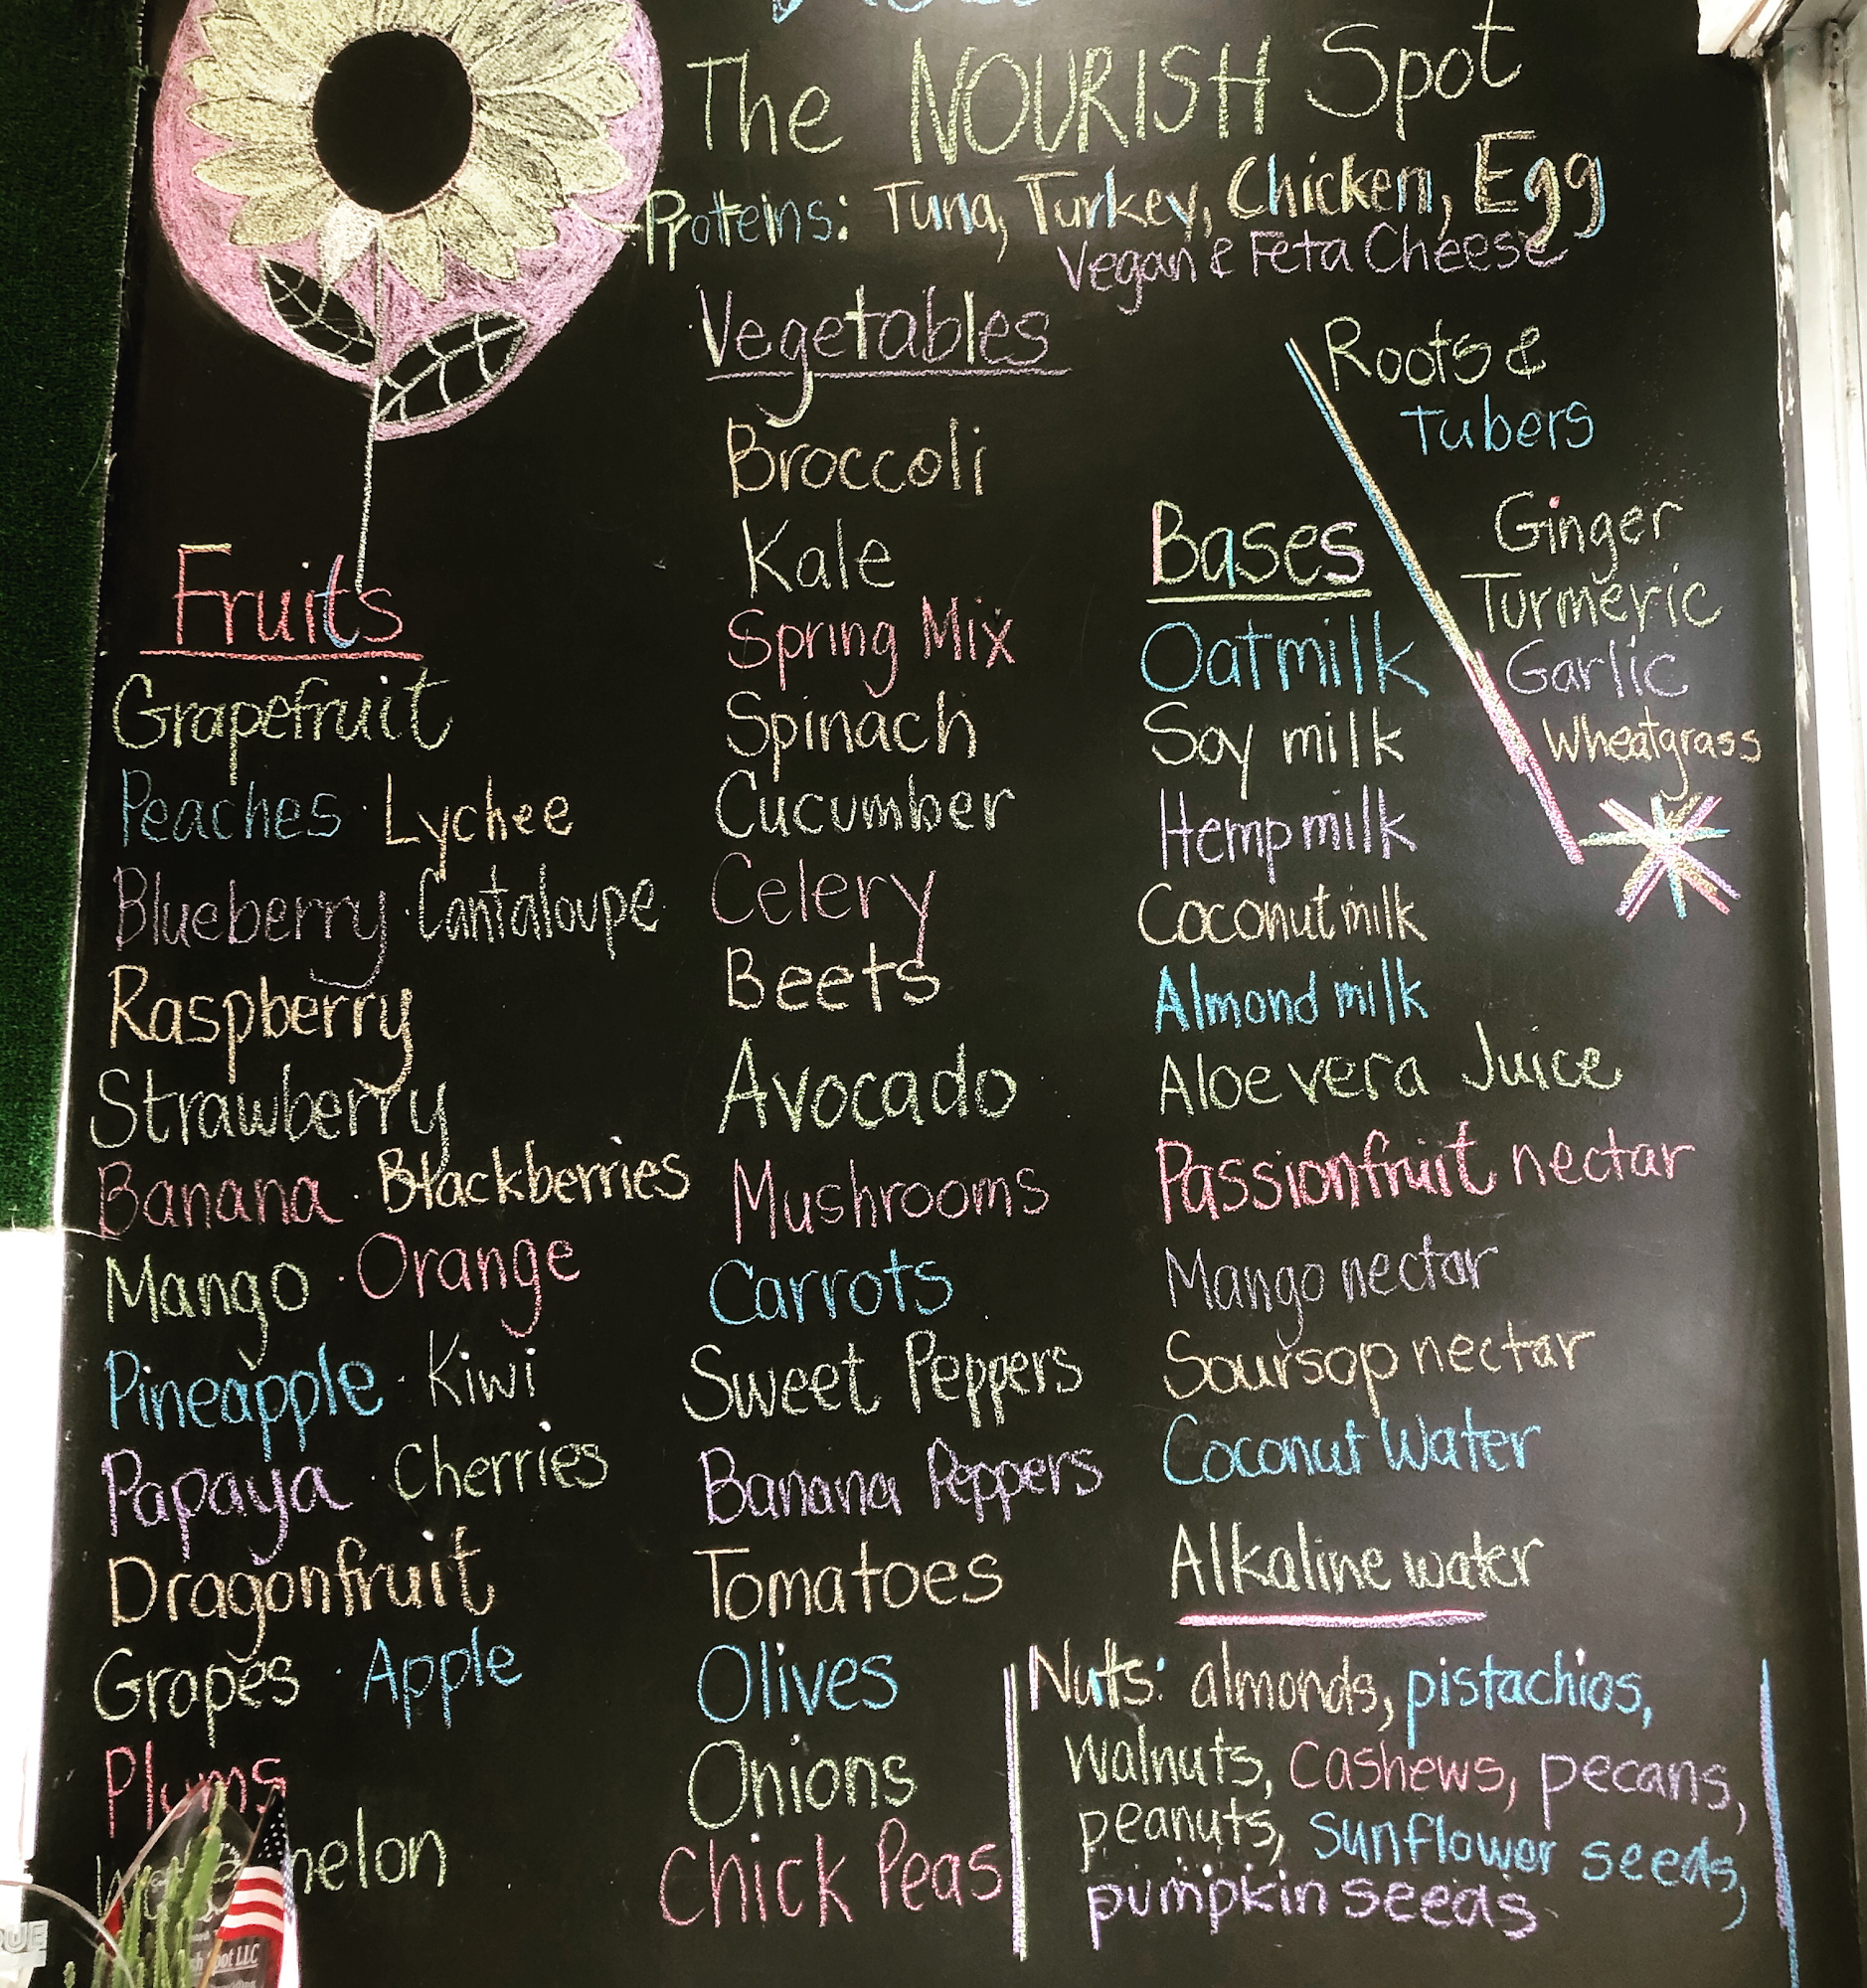 The NOURISH Spot
Proteins: Tuna, Turkey, Chicken, Egg
Vegan & Feta Cheese
Fruits
Grapefruit
Peaches · Lychee
Blueberry · Cantaloupe
Raspberry
Strawberry
Banana · Blackberries
Mango · Orange
Pineapple · Kiwi
Papaya · Cherries
Dragonfruit
Grapes · Apple
Plums
Vegetables
Broccoli
Kale
Spring Mix
Spinach
Cucumber
Celery
Beets
Avocado
Mushrooms
Carrots
Sweet Peppers
Banana Peppers
Tomatoes
Olives
Onions
Chick Peas
Bases
Oatmilk
Soy milk
Hempmilk
Coconutmilk
Almond milk
Aloe vera Juice
Passionfruit nectar
Mango nectar
Soursop nectar
Coconut Water
Alkaline water
Roots &
Tubers
Ginger
Turmeric
Garlic
Wheatgrass
Nuts: almonds, pistachios,
walnuts, Cashews, pecans,
peanuts, Sunflower seeds,
pumpkin seeds
LLC